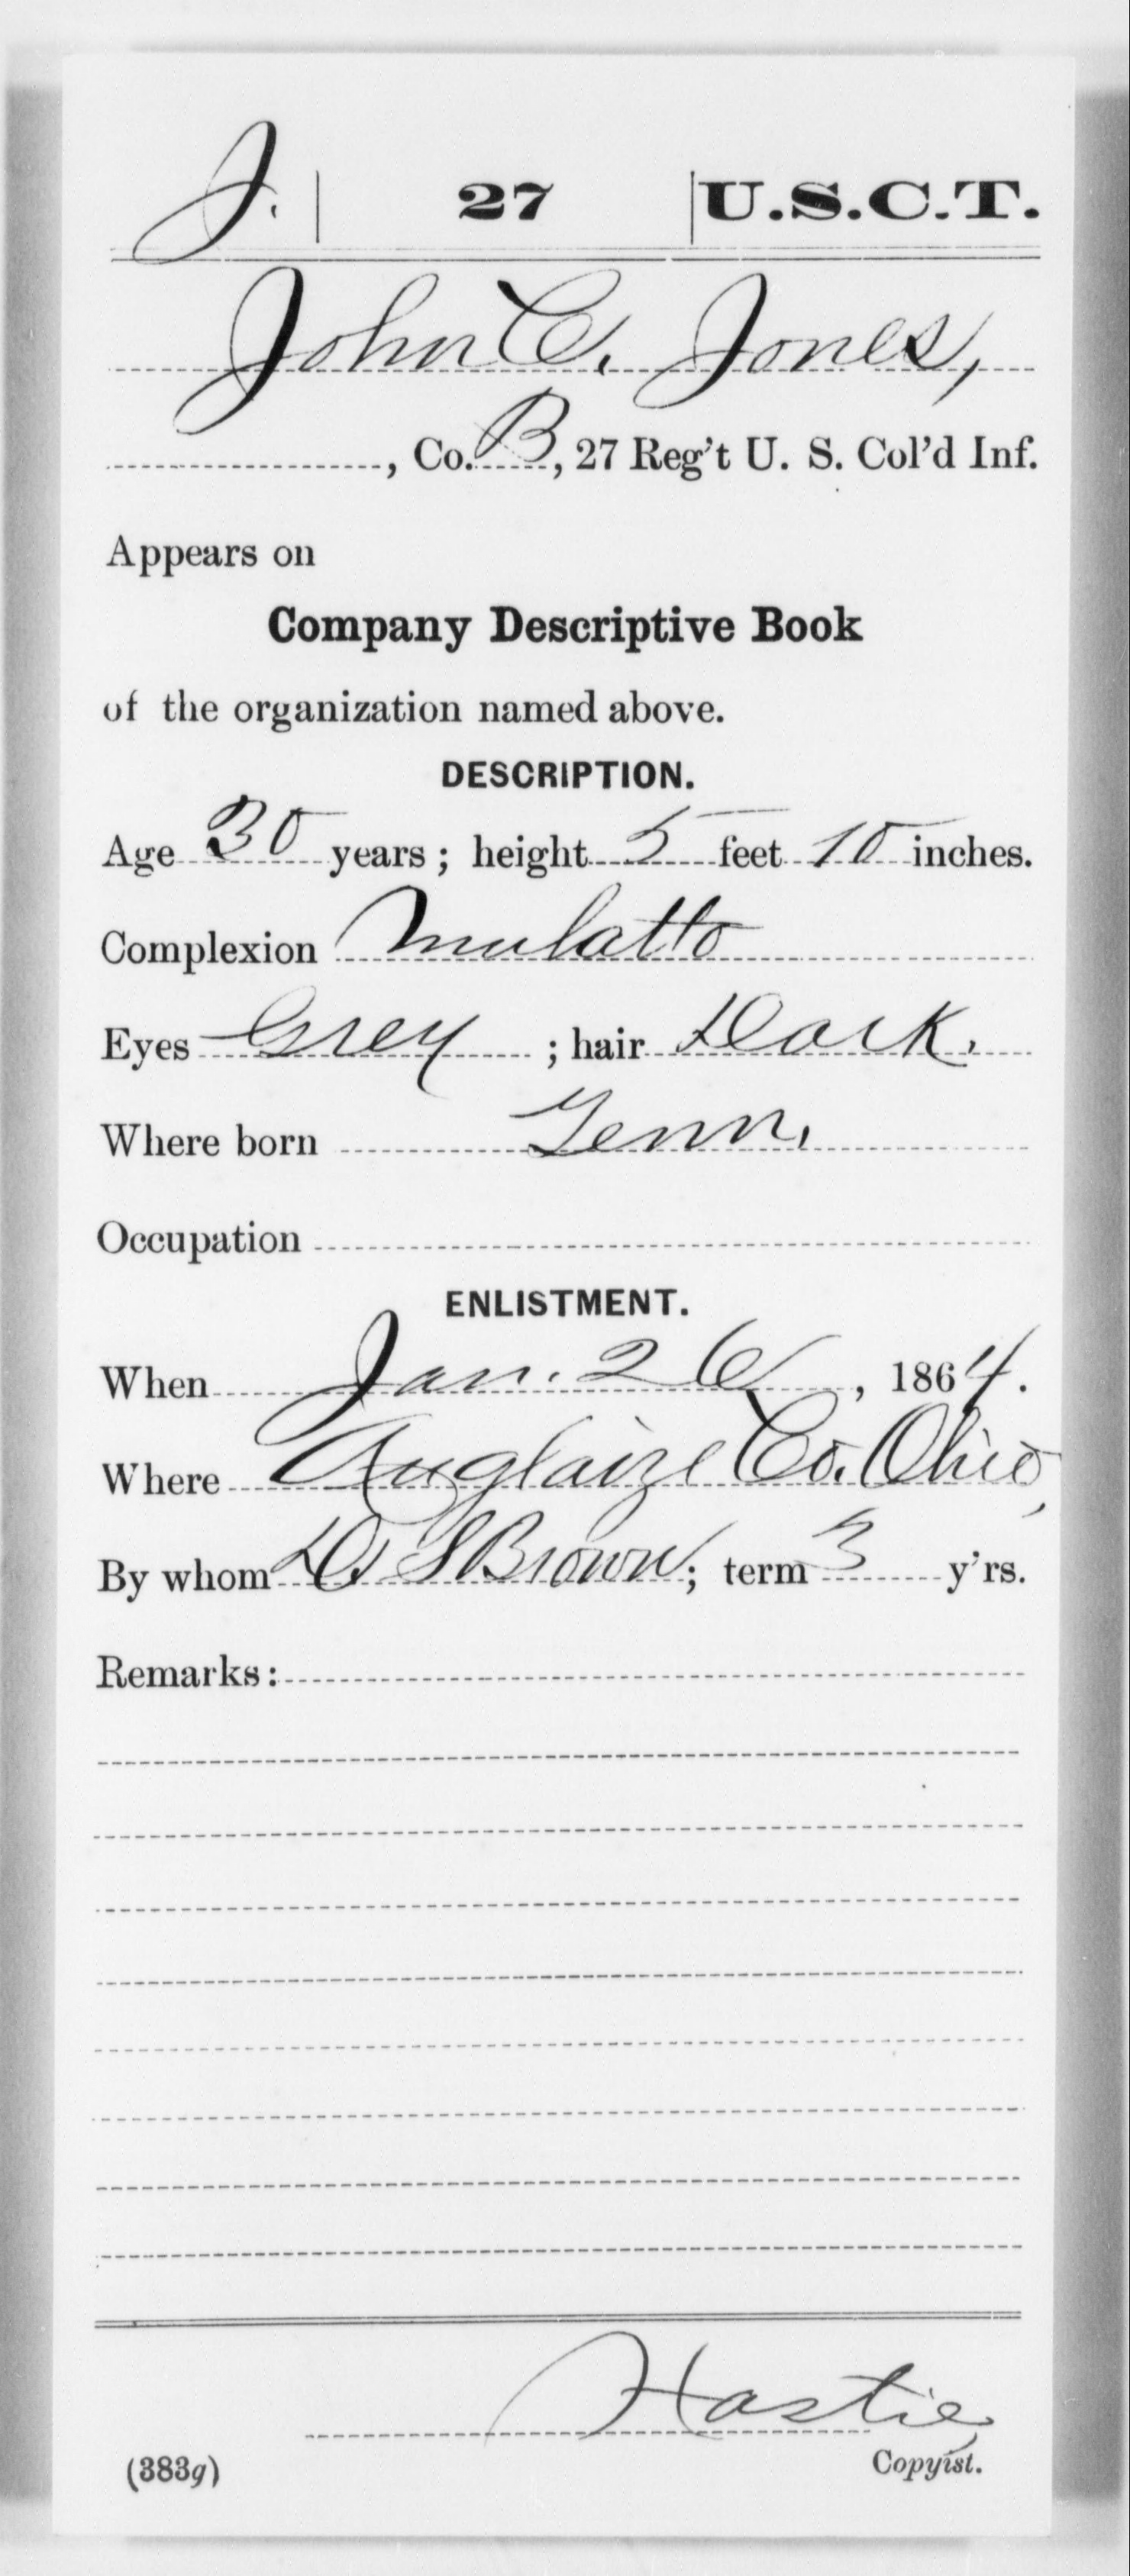 J. | 27 | U.S.C.T.
John C. Jones,
, Co. B, 27 Reg't U. S. Col'd Inf.
Appears on
Company Descriptive Book
of the organization named above.
DESCRIPTION.
Age 30 years; height 5 feet 10 inches.
Complexion Mulatto
Eyes Grey ; hair Dark.
Where born Tenn.
Occupation
ENLISTMENT.
When Jan. 26, 1864.
Where Auglaize Co. Ohio,
By whom D S Brown; term 3 y'rs.
Remarks:
Hastie
(383g) Copyist.